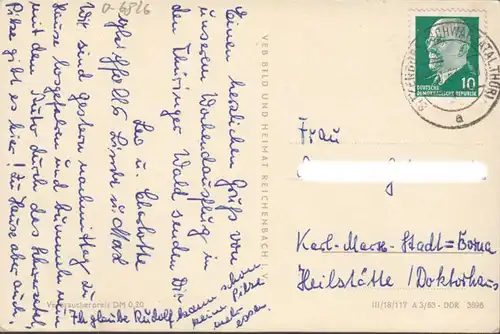 0-6826
Einen herzlichen Gruß von
unserem Wochendausflug in
den Thüringer Wald senden Dir
Leo u. Charlotte
Wir sind gestern nachmittag zu
Hause losgefahren und bummeln nun
mit dem Auto durch das Schwarzatal.
Pilze gibt es hier! Zu Hause aber auch.
Ich glaube Rudolf kann schon
keine Pilze
mehr
essen.
Verbraucherpreis DM 0,20
VEB BILD UND HEIMAT REICHENBACH I. V.
SCHWARZATAL
a
10
DEUTSCHE
DEMOKRATISCHE REPUBLIK
Frau
Karl-Marx-Stadt=Borna
Heilstätte / Doktorhaus
III/18/117 A 3/63 - DDR 3695